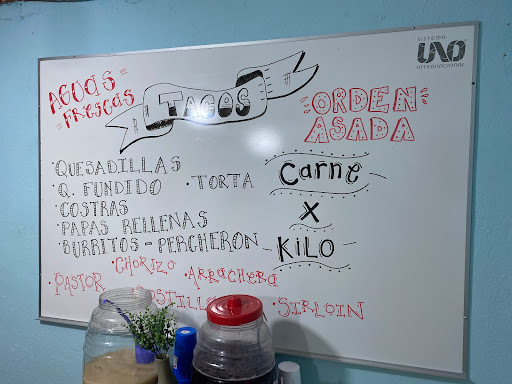 SISTEMA
UNO
INTERNACIONAL
AGUAS
FRESCAS
TACOS
ORDEN
ASADA
·QUESADILLAS
·Q. FUNDIDO
·COSTRAS
·PAPAS RELLENAS
·BURRITOS - PERCHERON
·TORTA
Carne
X
KILO
·PASTOR
·CHORIZO
·ARRACHERA
·SIRLOIN